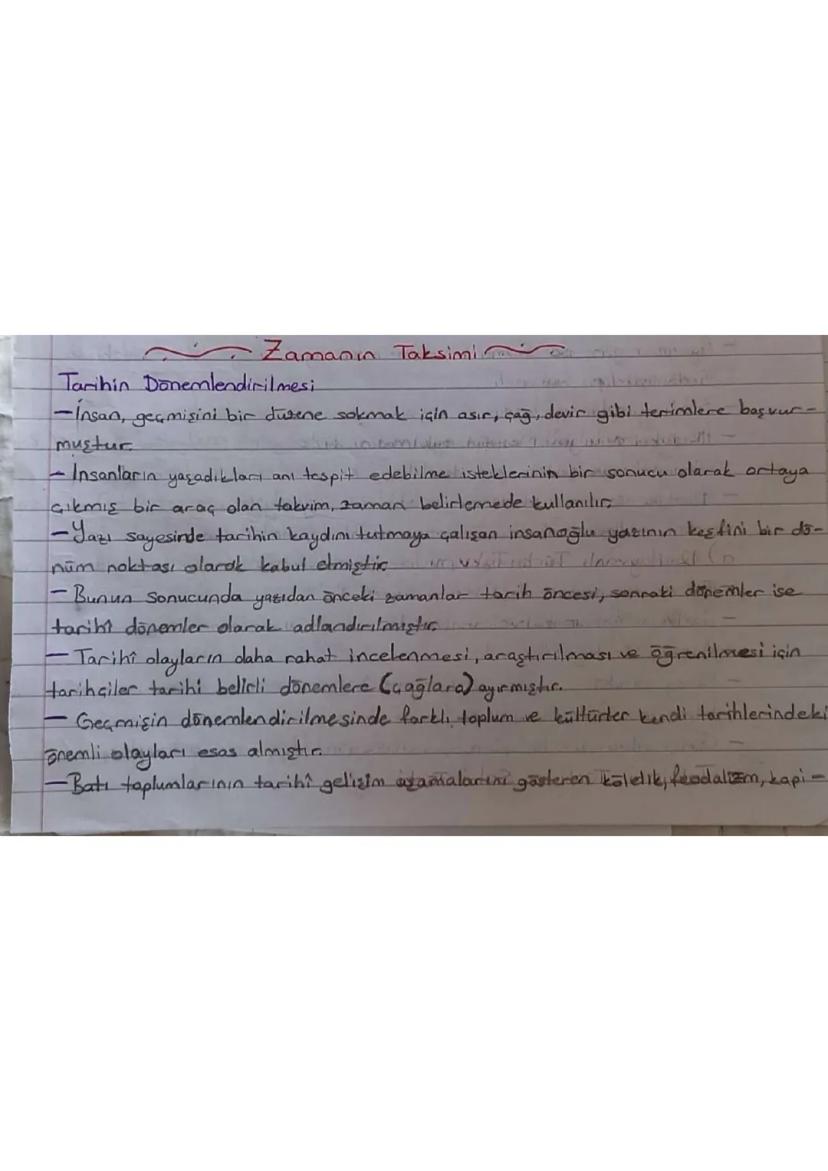 Zamanın Taksimi
Tarihin Dönemlendirilmesi
- İnsan, geçmişini bir düzene sokmak için asır, çağ, devir gibi terimlere başvur-
muştur.
- İnsanların yaşadıkları anı tespit edebilme isteklerinin bir sonucu olarak ortaya
çıkmış bir araç olan takvim, zaman belirlemede kullanılır.
- Yazı sayesinde tarihin kaydını tutmaya çalışan insanoğlu yazının keşfini bir dö-
nüm noktası olarak kabul etmiştir.
- Bunun sonucunda yazıdan önceki zamanlar tarih öncesi, sonraki dönemler ise
tarihî dönemler olarak adlandırılmıştır.
- Tarihî olayların daha rahat incelenmesi, araştırılması ve öğrenilmesi için
tarihçiler tarihi belirli dönemlere (çağlara) ayırmıştır.
- Geçmişin dönemlendirilmesinde farklı toplum ve kültürler kendi tarihlerindeki
önemli olayları esas almıştır.
- Batı toplumlarının tarihî gelişim aşamalarını gösteren kölelik, feodalizm, kapi-